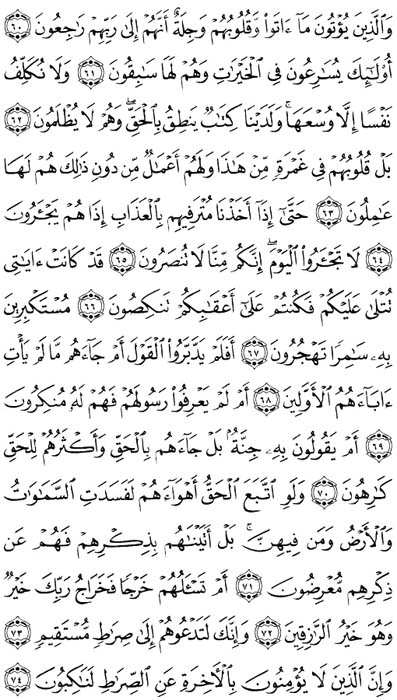 وَالَّذِينَ يُؤْتُونَ مَا ءَاتَوا۟ وَّقُلُوبُهُمْ وَجِلَةٌ أَنَّهُمْ إِلَىٰ رَبِّهِمْ رَٰجِعُونَ ﴿٦٠﴾
أُو۟لَٰٓئِكَ يُسَٰرِعُونَ فِى الْخَيْرَٰتِ وَهُمْ لَهَا سَٰبِقُونَ ﴿٦١﴾ وَلَا نُكَلِّفُ
نَفْسًا إِلَّا وُسْعَهَا ۖ وَلَدَيْنَا كِتَٰبٌ يَنطِقُ بِالْحَقِّ ۚ وَهُمْ لَا يُظْلَمُونَ ﴿٦٢﴾
بَلْ قُلُوبُهُمْ فِى غَمْرَةٍ مِّنْ هَٰذَا وَلَهُمْ أَعْمَٰلٌ مِّن دُونِ ذَٰلِكَ هُمْ لَهَا
عَٰمِلُونَ ﴿٦٣﴾ حَتَّىٰٓ إِذَآ أَخَذْنَا مُتْرَفِيهِم بِالْعَذَابِ إِذَا هُمْ يَجْـَٔرُونَ
﴿٦٤﴾ لَا تَجْـَٔرُوا۟ الْيَوْمَ ۖ إِنَّكُم مِّنَّا لَا تُنصَرُونَ ﴿٦٥﴾ قَدْ كَانَتْ ءَايَٰتِى
تُتْلَىٰ عَلَيْكُمْ فَكُنتُمْ عَلَىٰٓ أَعْقَٰبِكُمْ تَنكِصُونَ ﴿٦٦﴾ مُسْتَكْبِرِينَ
بِهِۦ سَٰمِرًا تَهْجُرُونَ ﴿٦٧﴾ أَفَلَمْ يَدَّبَّرُوا۟ الْقَوْلَ أَمْ جَآءَهُم مَّا لَمْ يَأْتِ
ءَابَآءَهُمُ الْأَوَّلِينَ ﴿٦٨﴾ أَمْ لَمْ يَعْرِفُوا۟ رَسُولَهُمْ فَهُمْ لَهُۥ مُنكِرُونَ
﴿٦٩﴾ أَمْ يَقُولُونَ بِهِۦ جِنَّةٌۢ ۚ بَلْ جَآءَهُم بِالْحَقِّ وَأَكْثَرُهُمْ لِلْحَقِّ
كَٰرِهُونَ ﴿٧٠﴾ وَلَوِ اتَّبَعَ الْحَقُّ أَهْوَآءَهُمْ لَفَسَدَتِ السَّمَٰوَٰتُ
وَالْأَرْضُ وَمَن فِيهِنَّ ۚ بَلْ أَتَيْنَٰهُم بِذِكْرِهِمْ فَهُمْ عَن
ذِكْرِهِم مُّعْرِضُونَ ﴿٧١﴾ أَمْ تَسْـَٔلُهُمْ خَرْجًا فَخَرَاجُ رَبِّكَ خَيْرٌ ۖ
وَهُوَ خَيْرُ الرَّٰزِقِينَ ﴿٧٢﴾ وَإِنَّكَ لَتَدْعُوهُمْ إِلَىٰ صِرَٰطٍ مُّسْتَقِيمٍ ﴿٧٣﴾
وَإِنَّ الَّذِينَ لَا يُؤْمِنُونَ بِالْـَٔاخِرَةِ عَنِ الصِّرَٰطِ لَنَٰكِبُونَ ﴿٧٤﴾